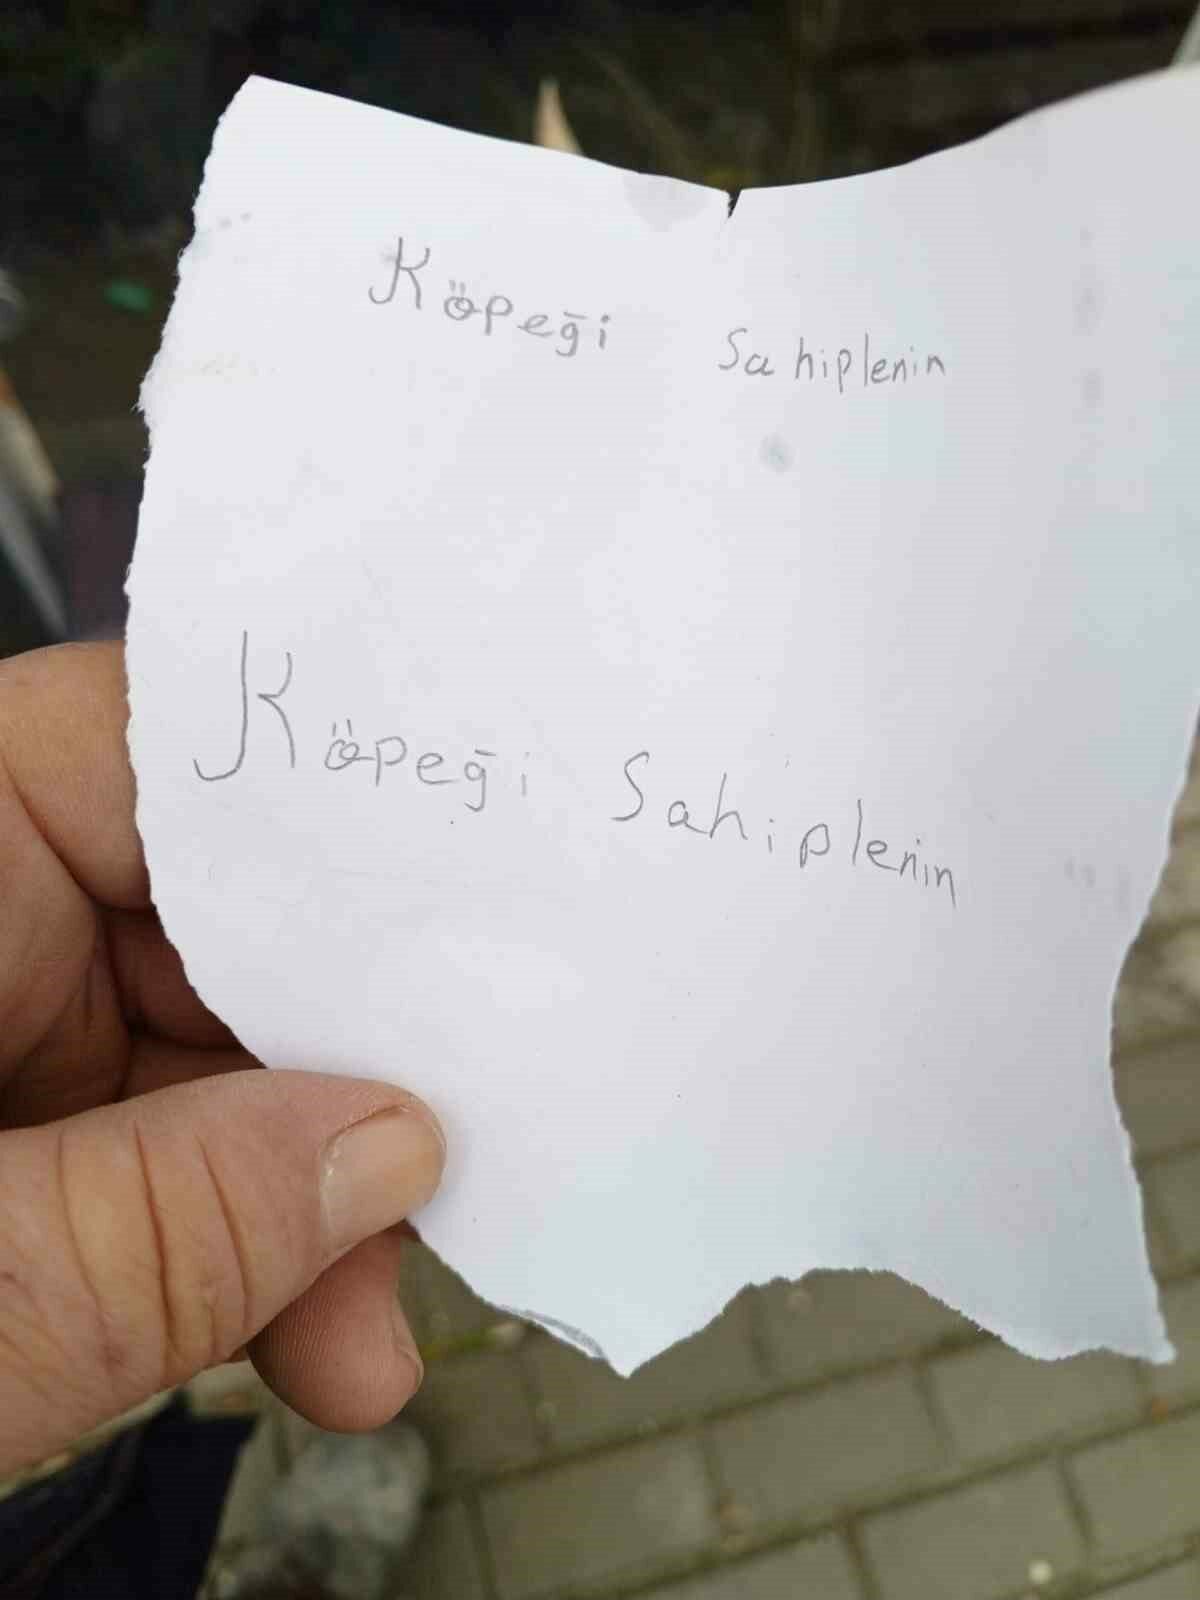 Köpeği Sahiplenin
Köpeği Sahiplenin